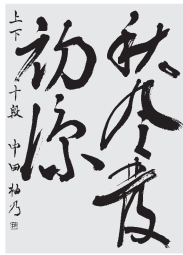 秋風發
初涼
上下 十段 中田柚乃